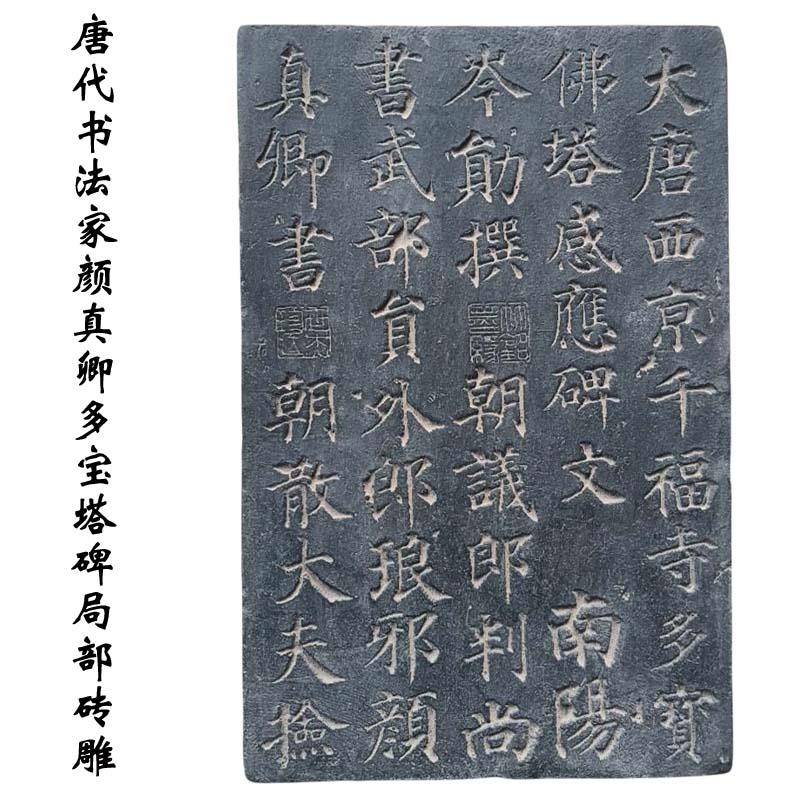 唐代书法家颜真卿多宝塔碑局部砖雕
大唐西京千福寺多寶
佛塔感應碑文 南陽
岑勛撰 朝議郎判尚
書武部員外郎琅邪顏
真卿書 朝散大夫撿